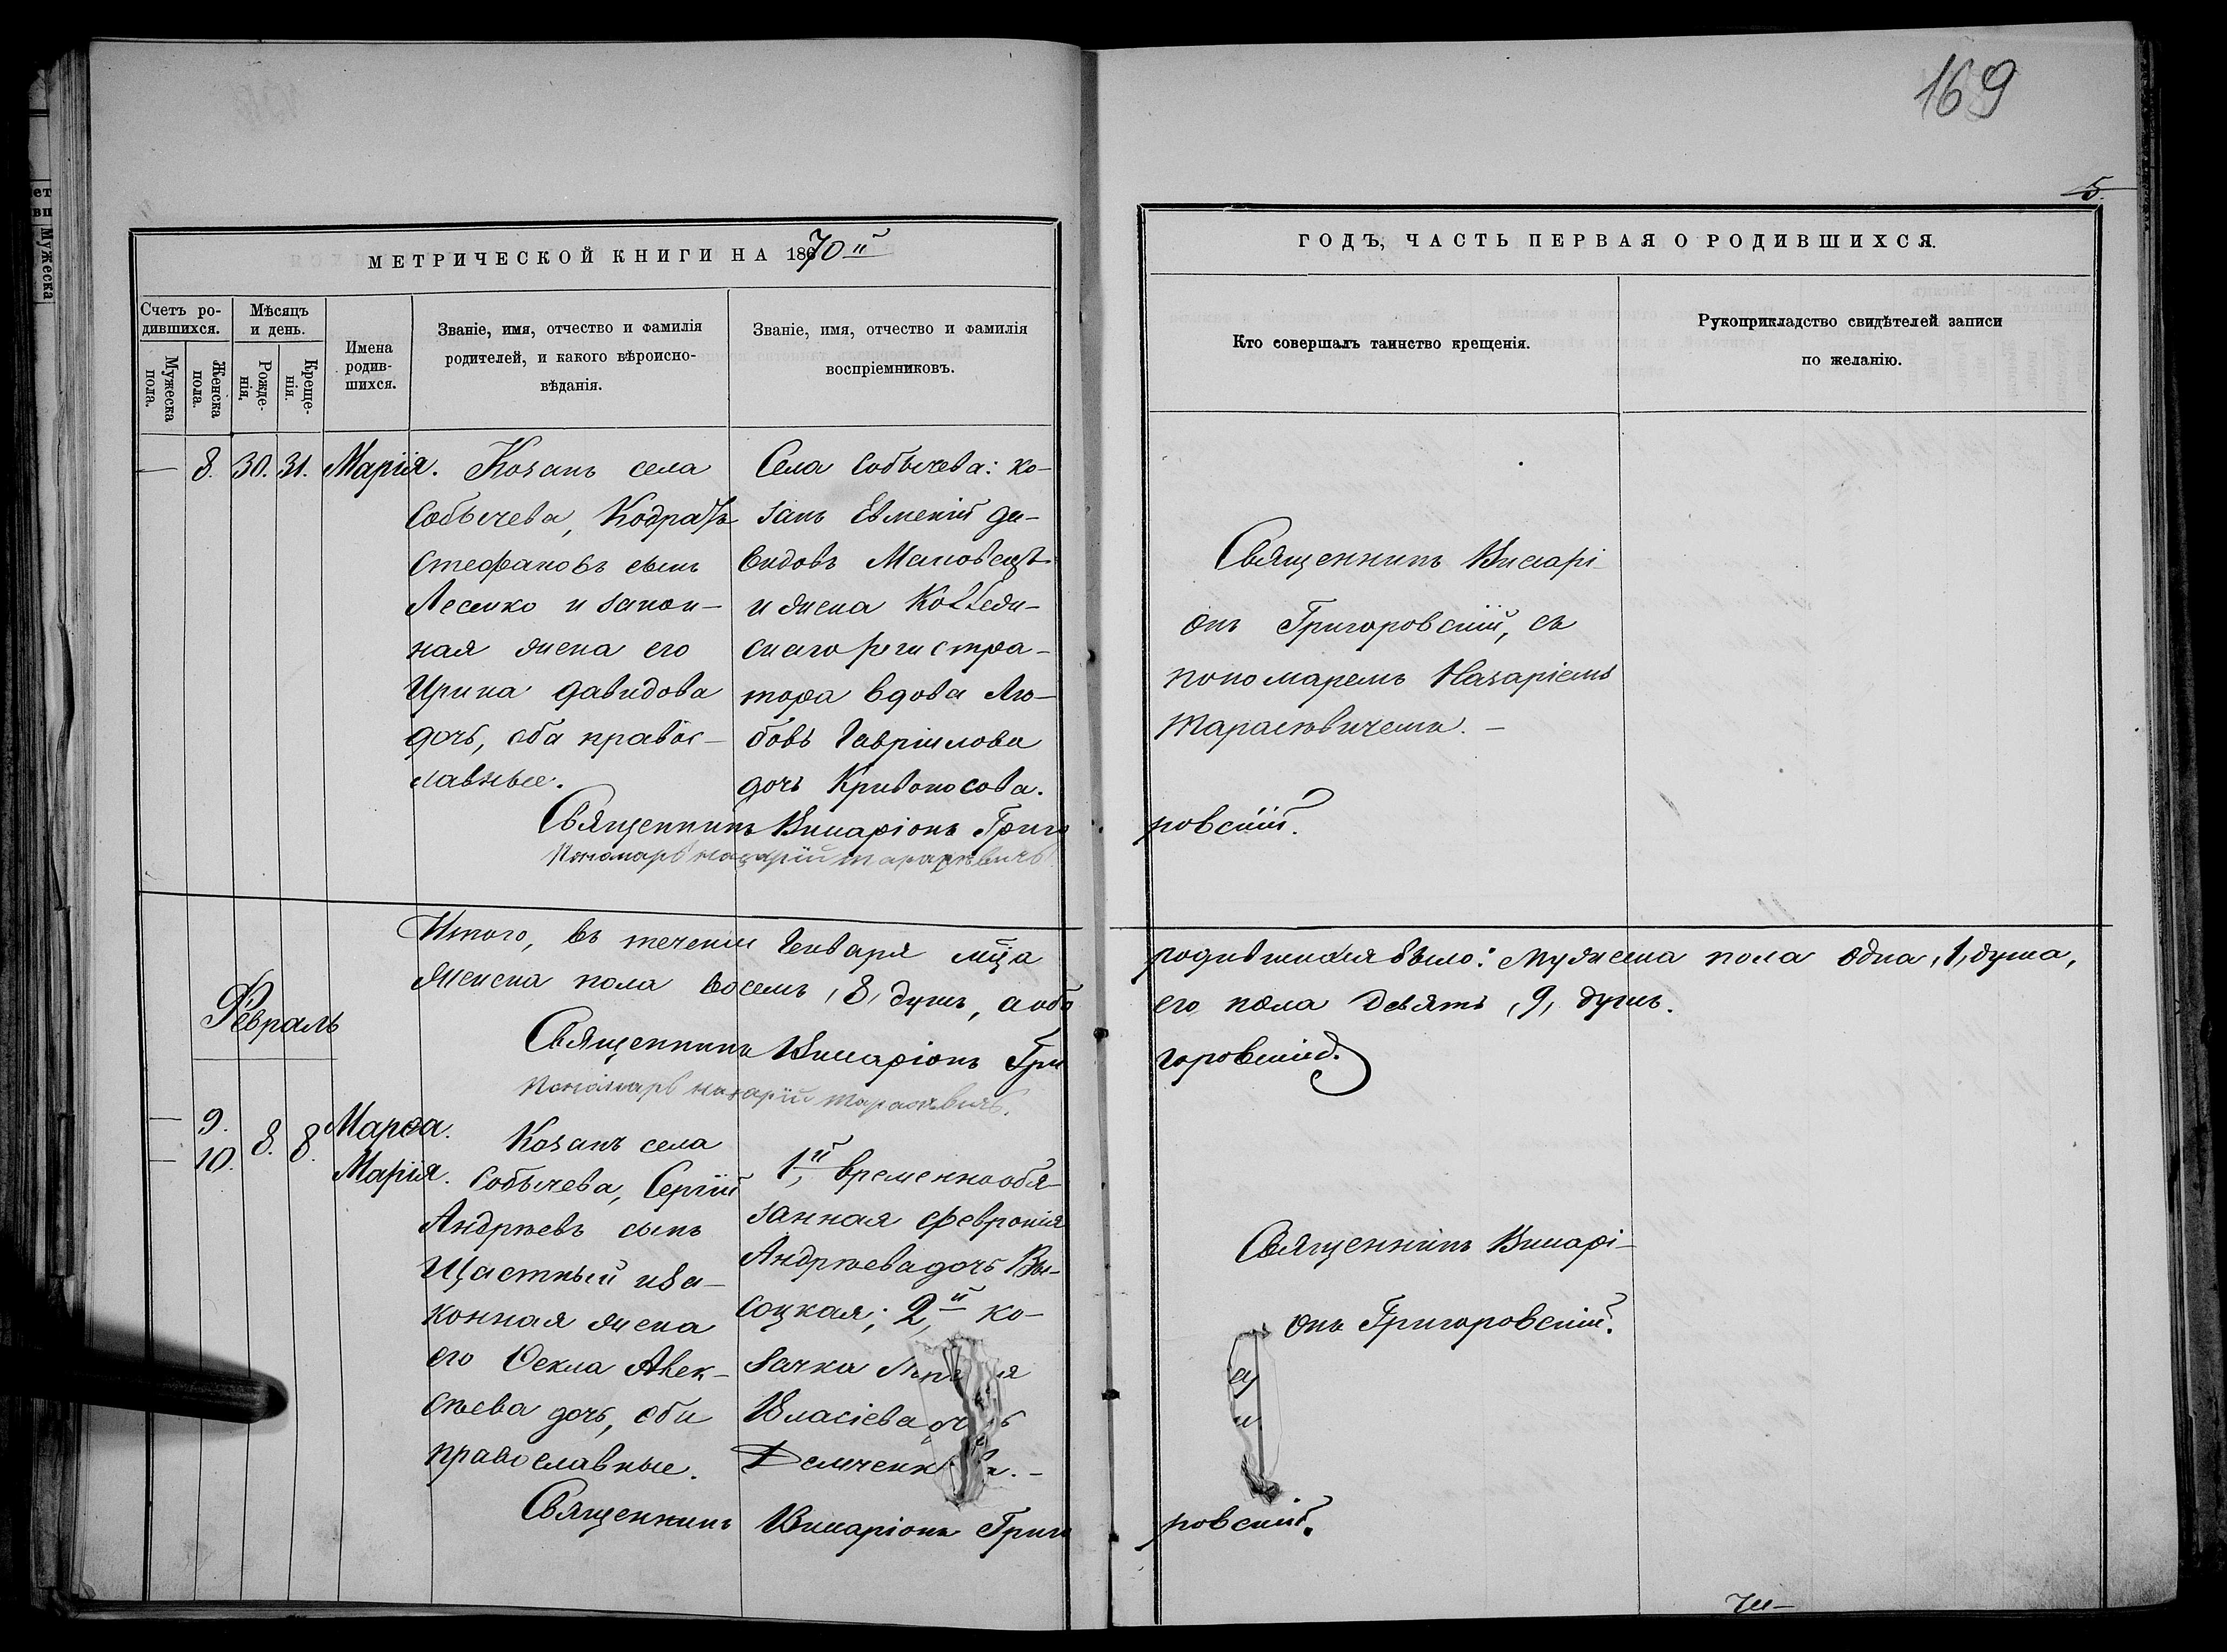 169
5.
МЕТРИЧЕСКОЙ КНИГИ НА 1870й
ГОДЪ, ЧАСТЬ ПЕРВАЯ О РОДИВШИХСЯ.
Счетъ ро-
дившихся.
Мужеска
пола.
Женска
пола.
Мѣсяцъ
и день.
Рожде-
нія.
Креще-
нія.
Имена
родив-
шихся.
Званіе, имя, отчество и фамилія
родителей, и какого вѣроиспо-
вѣданія.
Званіе, имя, отчество и фамилія
воспріемниковъ.
Кто совершалъ таинство крещенія.
Рукоприкладство свидѣтелей записи
по желанію.
— 8. 30. 31. Марія.
Козакъ села
Собычева, Кодратъ
Стефановъ сынъ
Лесенко и закон-
ная жена его
Ирина Давидова
дочь, оба правос-
лавные.
Села Собычева: ко-
закъ Евменій Да-
видовъ
и жена Коллеж-
скаго регистра-
тора вдова Лю-
бовь Гавріилова
дочь Кривоносова.
Священникъ Виссарі-
онъ Григоровскій, съ
пономаремъ Назаріемъ
Тараскевичемъ. —
Священникъ Виссаріонъ Григо
ровскій.
Пономарь Назарій Тараскевичъ
Итого, въ теченіи Генваря мца
родившихся было: мужеска пола одна, 1, душа,
женска пола восемь, 8, душъ, а обо
его пола девять, 9, душъ.
Февраль
Священникъ Виссаріонъ Гри
горовскій.
Пономарь Назарій Тараскевичъ.
— 9. 8. 8. Марѳа.
— 10. Марія.
Козакъ села
Собычева, Сергій
Андреевъ сынъ
Щастный и за-
конная жена
его Ѳекла Алек-
сѣева дочь, оба
православные.
1й, временнообя-
занная Февронія
Андреева дочь Вы-
соцкая; 2й, ко-
зачка
Власіева дочь
Священникъ Виссарі-
онъ Григоровскій.
Священникъ Виссаріонъ Григо
ровскій.